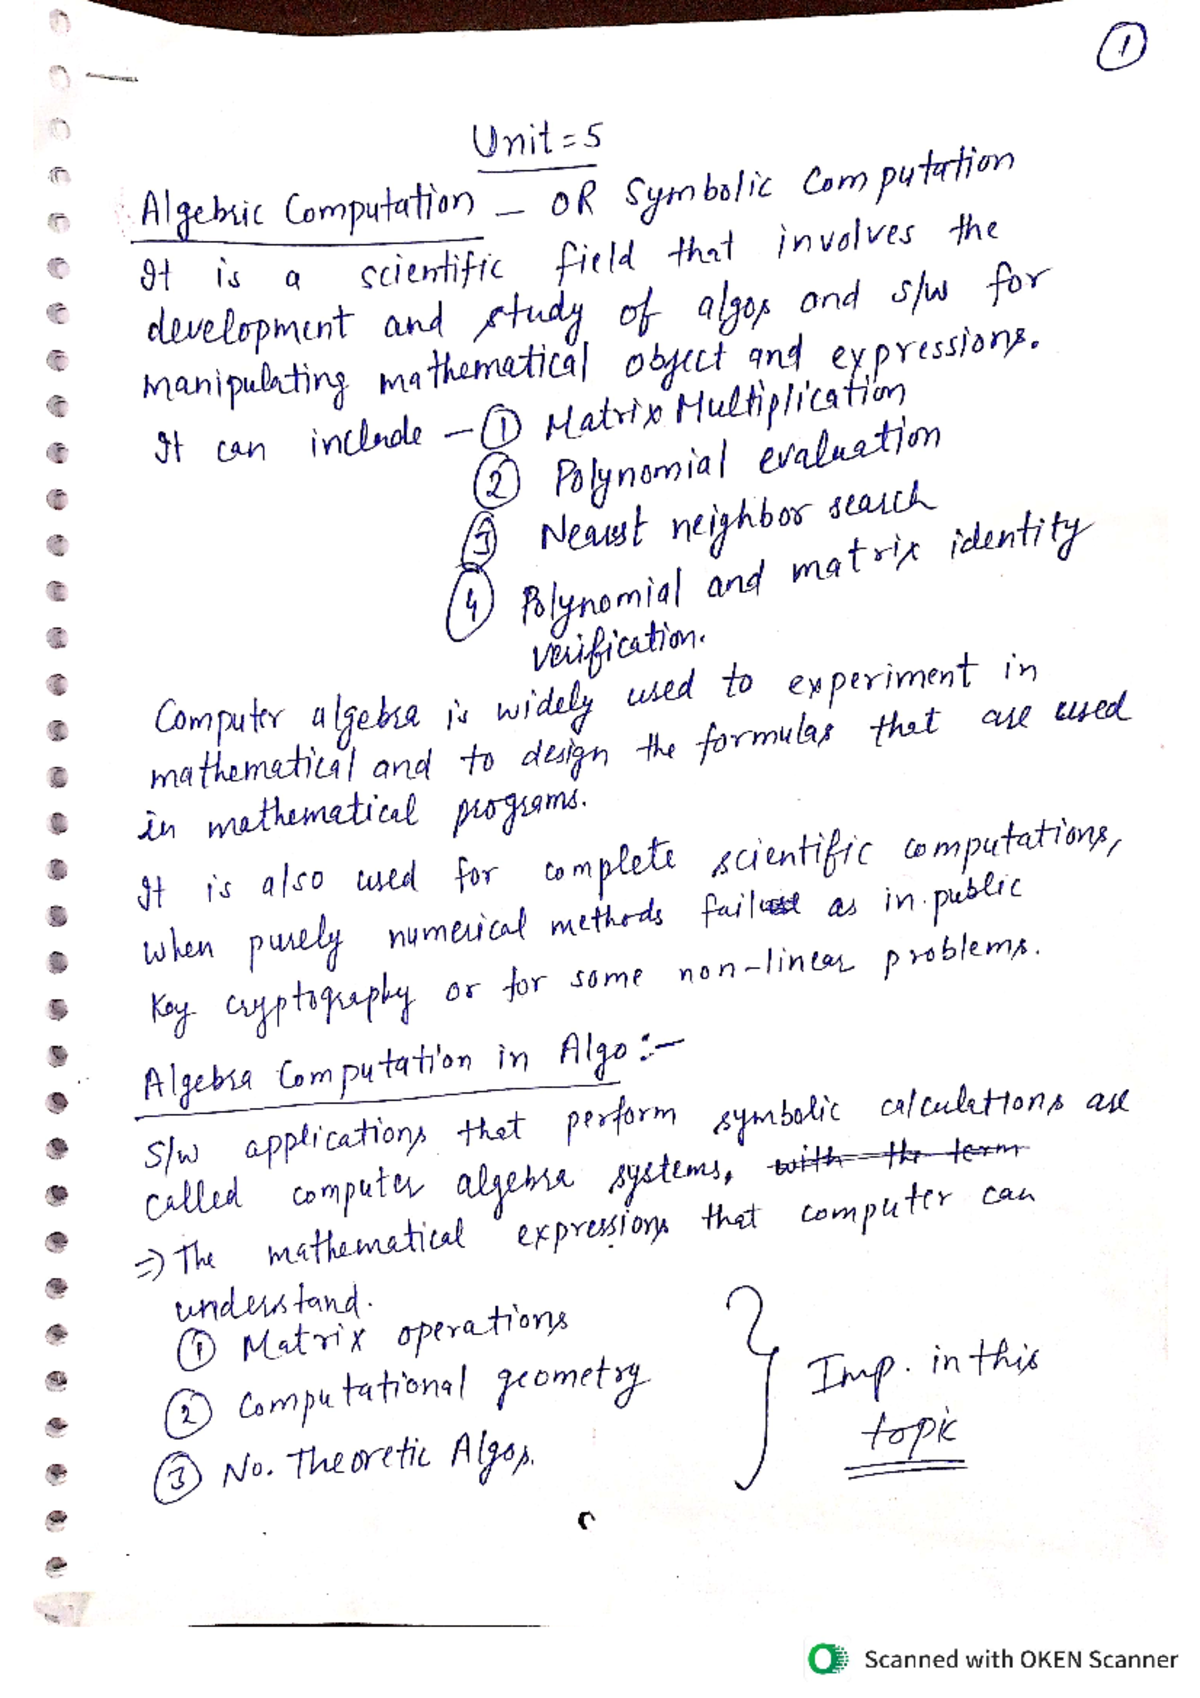 1
Unit = 5
Algebric Computation – OR Symbolic Computation
It is a scientific field that involves the
development and study of algos and s/w for
manipulating mathematical object and expressions.
It can include – ① Matrix Multiplication
② Polynomial evaluation
③ Nearest neighbor search
④ Polynomial and matrix identity
verification.
Computer algebra is widely used to experiment in
mathematical and to design the formulas that are used
in mathematical programs.
It is also used for complete scientific computations,
when purely numerical methods fail as in public
Key cryptography or for some non-linear problems.
Algebra Computation in Algo :–
S/w applications that perform symbolic calculations are
called computer algebra systems, with the term
⇒ The mathematical expressions that computer can
understand.
① Matrix operations
② Computational geometry
③ No. Theoretic Algos.
Imp. in this
topic
Scanned with OKEN Scanner